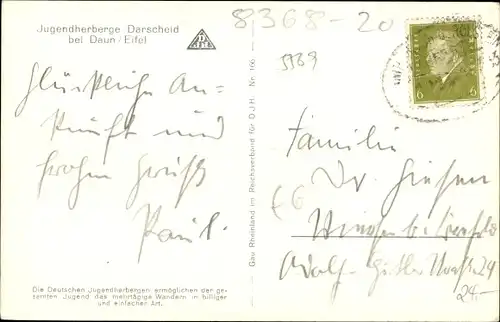 Jugendherberge Darscheid
bei Daun/Eifel
8368-20
5989
6
Glückliche An-
kunft und
frohen Gruß
Paul.
Gau Rheinland im Reichsverband für D.J.H. Nr. 166
Familie
Dr. Giesen
Adolf-Hitler 24
24.-
Die Deutschen Jugendherbergen ermöglichen der ge-
samten Jugend das mehrtägige Wandern in billiger
und einfacher Art.